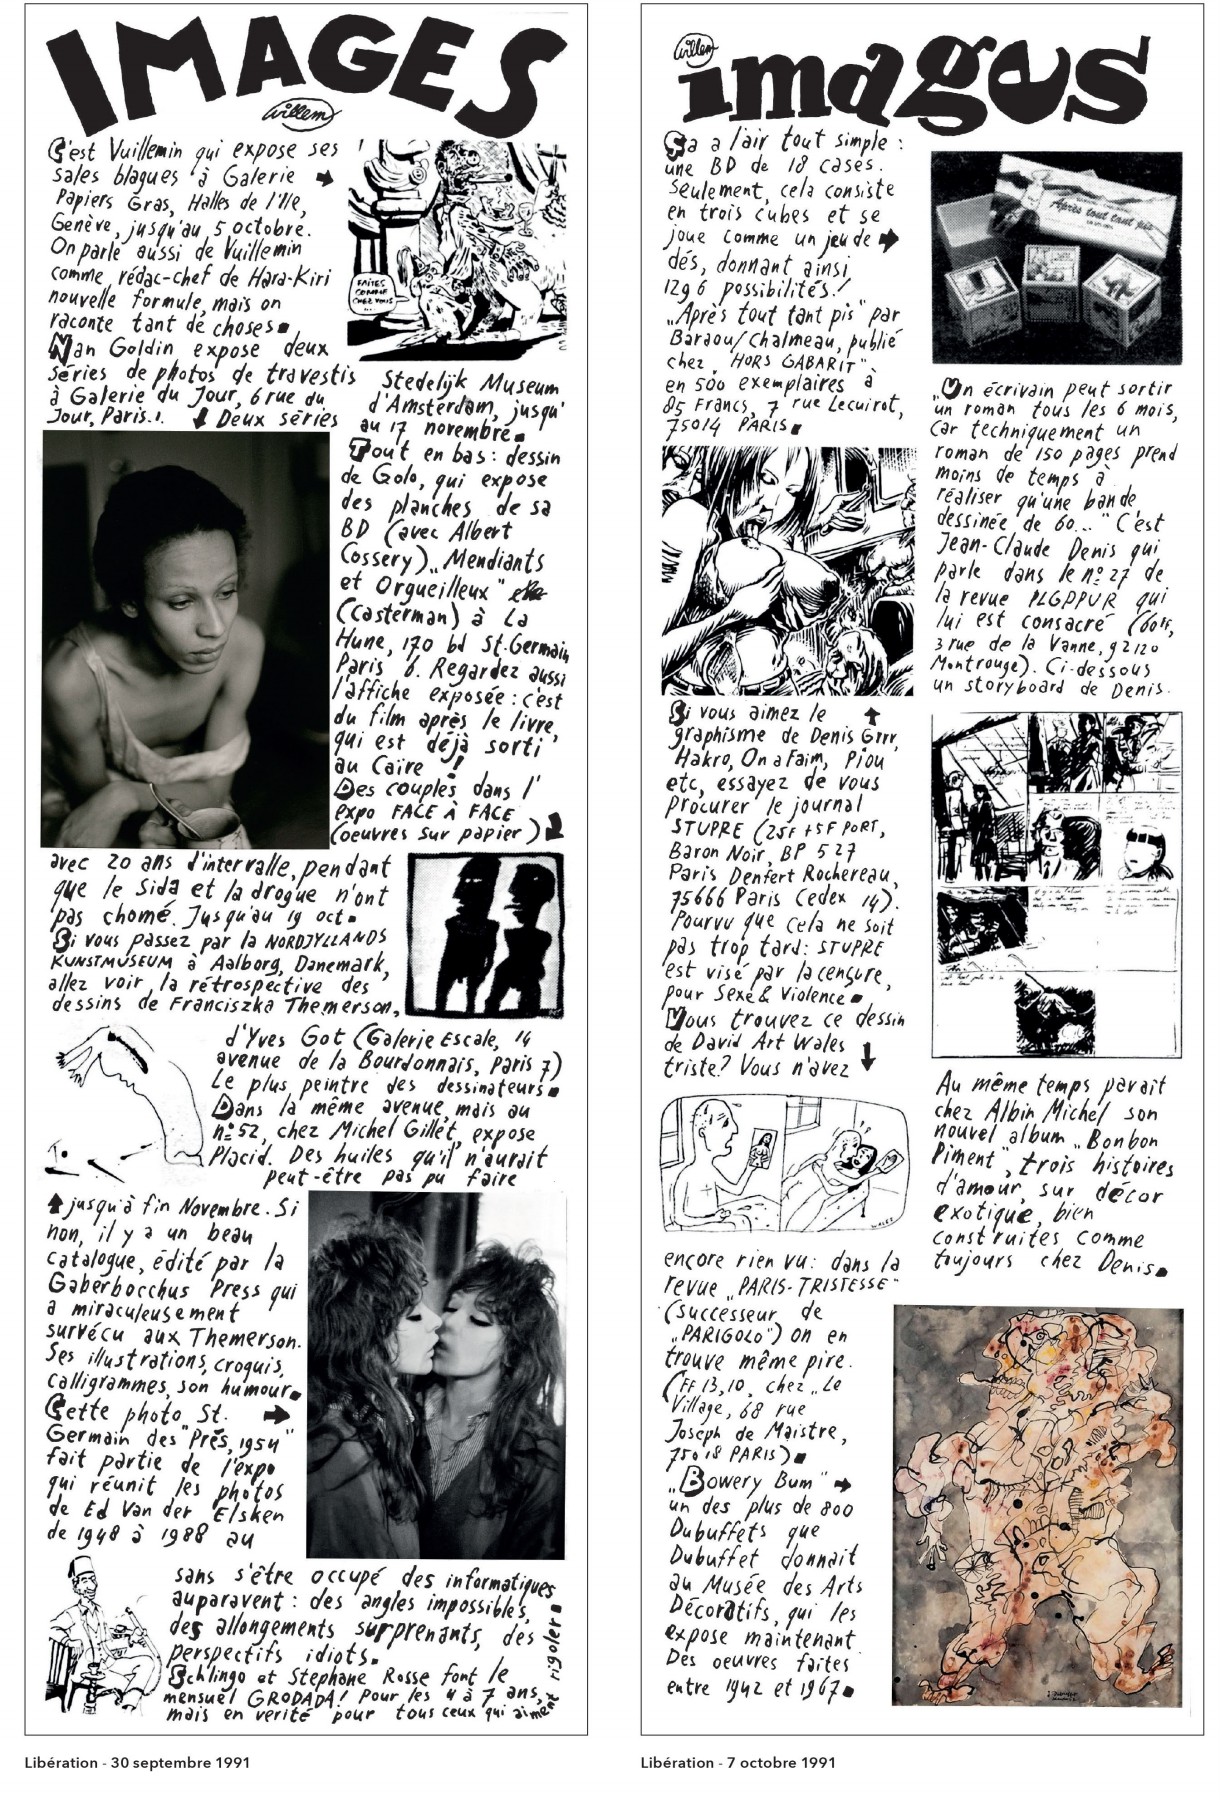 IMAGES
Willem
C'est Vuillemin qui expose ses
sales blagues à Galerie
Papiers Gras, Halles de l'Ile,
Genève, jusqu'au 5 octobre.
On parle aussi de Vuillemin
comme rédac-chef de Hara-Kiri
nouvelle formule, mais on
raconte tant de choses.
Nan Goldin expose deux
séries de photos de travestis
à Galerie du Jour, 6 rue du
Jour, Paris.1. Deux séries
FAITES
COMME
CHEZ VOUS
...
avec 20 ans d'intervalle, pendant
que le Sida et la drogue n'ont
pas chomé. Jusqu'au 19 oct.
Si vous passez par la NORDJYLLANDS
KUNSTMUSEUM à Aalborg, Danemark,
allez voir la rétrospective des
dessins de Franciszka Themerson,
jusqu'à fin Novembre. Si
non, il y a un beau
catalogue, édité par la
Gaberbocchus Press qui
a miraculeusement
survécu aux Themerson.
Ses illustrations, croquis,
calligrammes, son humour.
Cette photo „St.
Germain des Prés, 1954"
fait partie de l'expo
qui réunit les photos
de Ed Van der Elsken
de 1948 à 1988 au
Stedelijk Museum
d'Amsterdam, jusqu'
au 17 novembre.
Tout en bas: dessin
de Golo, qui expose
des planches de sa
BD (avec Albert
Cossery) „Mendiants
et Orgueilleux"
(Casterman) à La
Hune, 170 bd St.Germain
Paris 6. Regardez aussi
l'affiche exposée: c'est
du film après le livre,
qui est déjà sorti
au Caire!
Des couples dans l'
expo FACE À FACE
(oeuvres sur papier)
d'Yves Got (Galerie Escale, 14
avenue de la Bourdonnais, Paris 7)
Le plus peintre des dessinateurs.
Dans la même avenue, mais au
nº 52, chez Michel Gillet, expose
Placid. Des huiles qu'il n'aurait
peut-être pas pu faire
sans s'être occupé des informatiques
auparavant: des angles impossibles,
des allongements surprenants, des
perspectifs idiots.
Schlingo et Stephane Rosse font le
mensuel GRODADA! Pour les 4 à 7 ans,
mais en verité pour tous ceux qui aiment rigoler.
Libération - 30 septembre 1991
Willem
images
Ça a l'air tout simple:
une BD de 18 cases.
Seulement, cela consiste
en trois cubes et se
joue comme un jeu de
dés, donnant ainsi
1296 possibilités!
„Après tout tant pis" par
Baraou/Chalmeau, publié
chez „HORS GABARIT"
en 500 exemplaires à
85 Francs, 7 rue Lecuirot,
75014 PARIS.
Après tout tant pis
Si vous aimez le
graphisme de Denis Grrr,
Hakro, On a Faim, Piou
etc, essayez de vous
procurer le journal
STUPRE (25F +5F PORT,
Baron Noir, BP 527
Paris Denfert Rochereau,
75666 Paris Cedex 14).
Pourvu que cela ne soit
pas trop tard: STUPRE
est visé par la censure,
pour Sexe & Violence.
Vous trouvez ce dessin
de David Art Wales
triste? Vous n'avez
WALES
encore rien vu: dans la
revue „PARIS-TRISTESSE"
(successeur de
„PARIGOLO") on en
trouve même pire.
(FF 13,10, chez „Le
Village, 68 rue
Joseph de Maistre,
75018 PARIS).
„Bowery Bum"
un des plus de 800
Dubuffets que
Dubuffet donnait
au Musée des Arts
Décoratifs, qui les
expose maintenant
Des oeuvres faites
entre 1942 et 1967.
„Un écrivain peut sortir
un roman tous les 6 mois,
car techniquement un
roman de 150 pages prend
moins de temps à
réaliser qu'une bande
dessinée de 60..." C'est
Jean-Claude Denis qui
parle dans le nº 27 de
la revue PLGPPUR qui
lui est consacré (60FF,
3 rue de la Vanne, 92120
Montrouge). Ci-dessous
un storyboard de Denis.
Au même temps parait
chez Albin Michel son
nouvel album „Bonbon
Piment", trois histoires
d'amour, sur décor
exotique, bien
construites comme
toujours chez Denis.
Libération - 7 octobre 1991